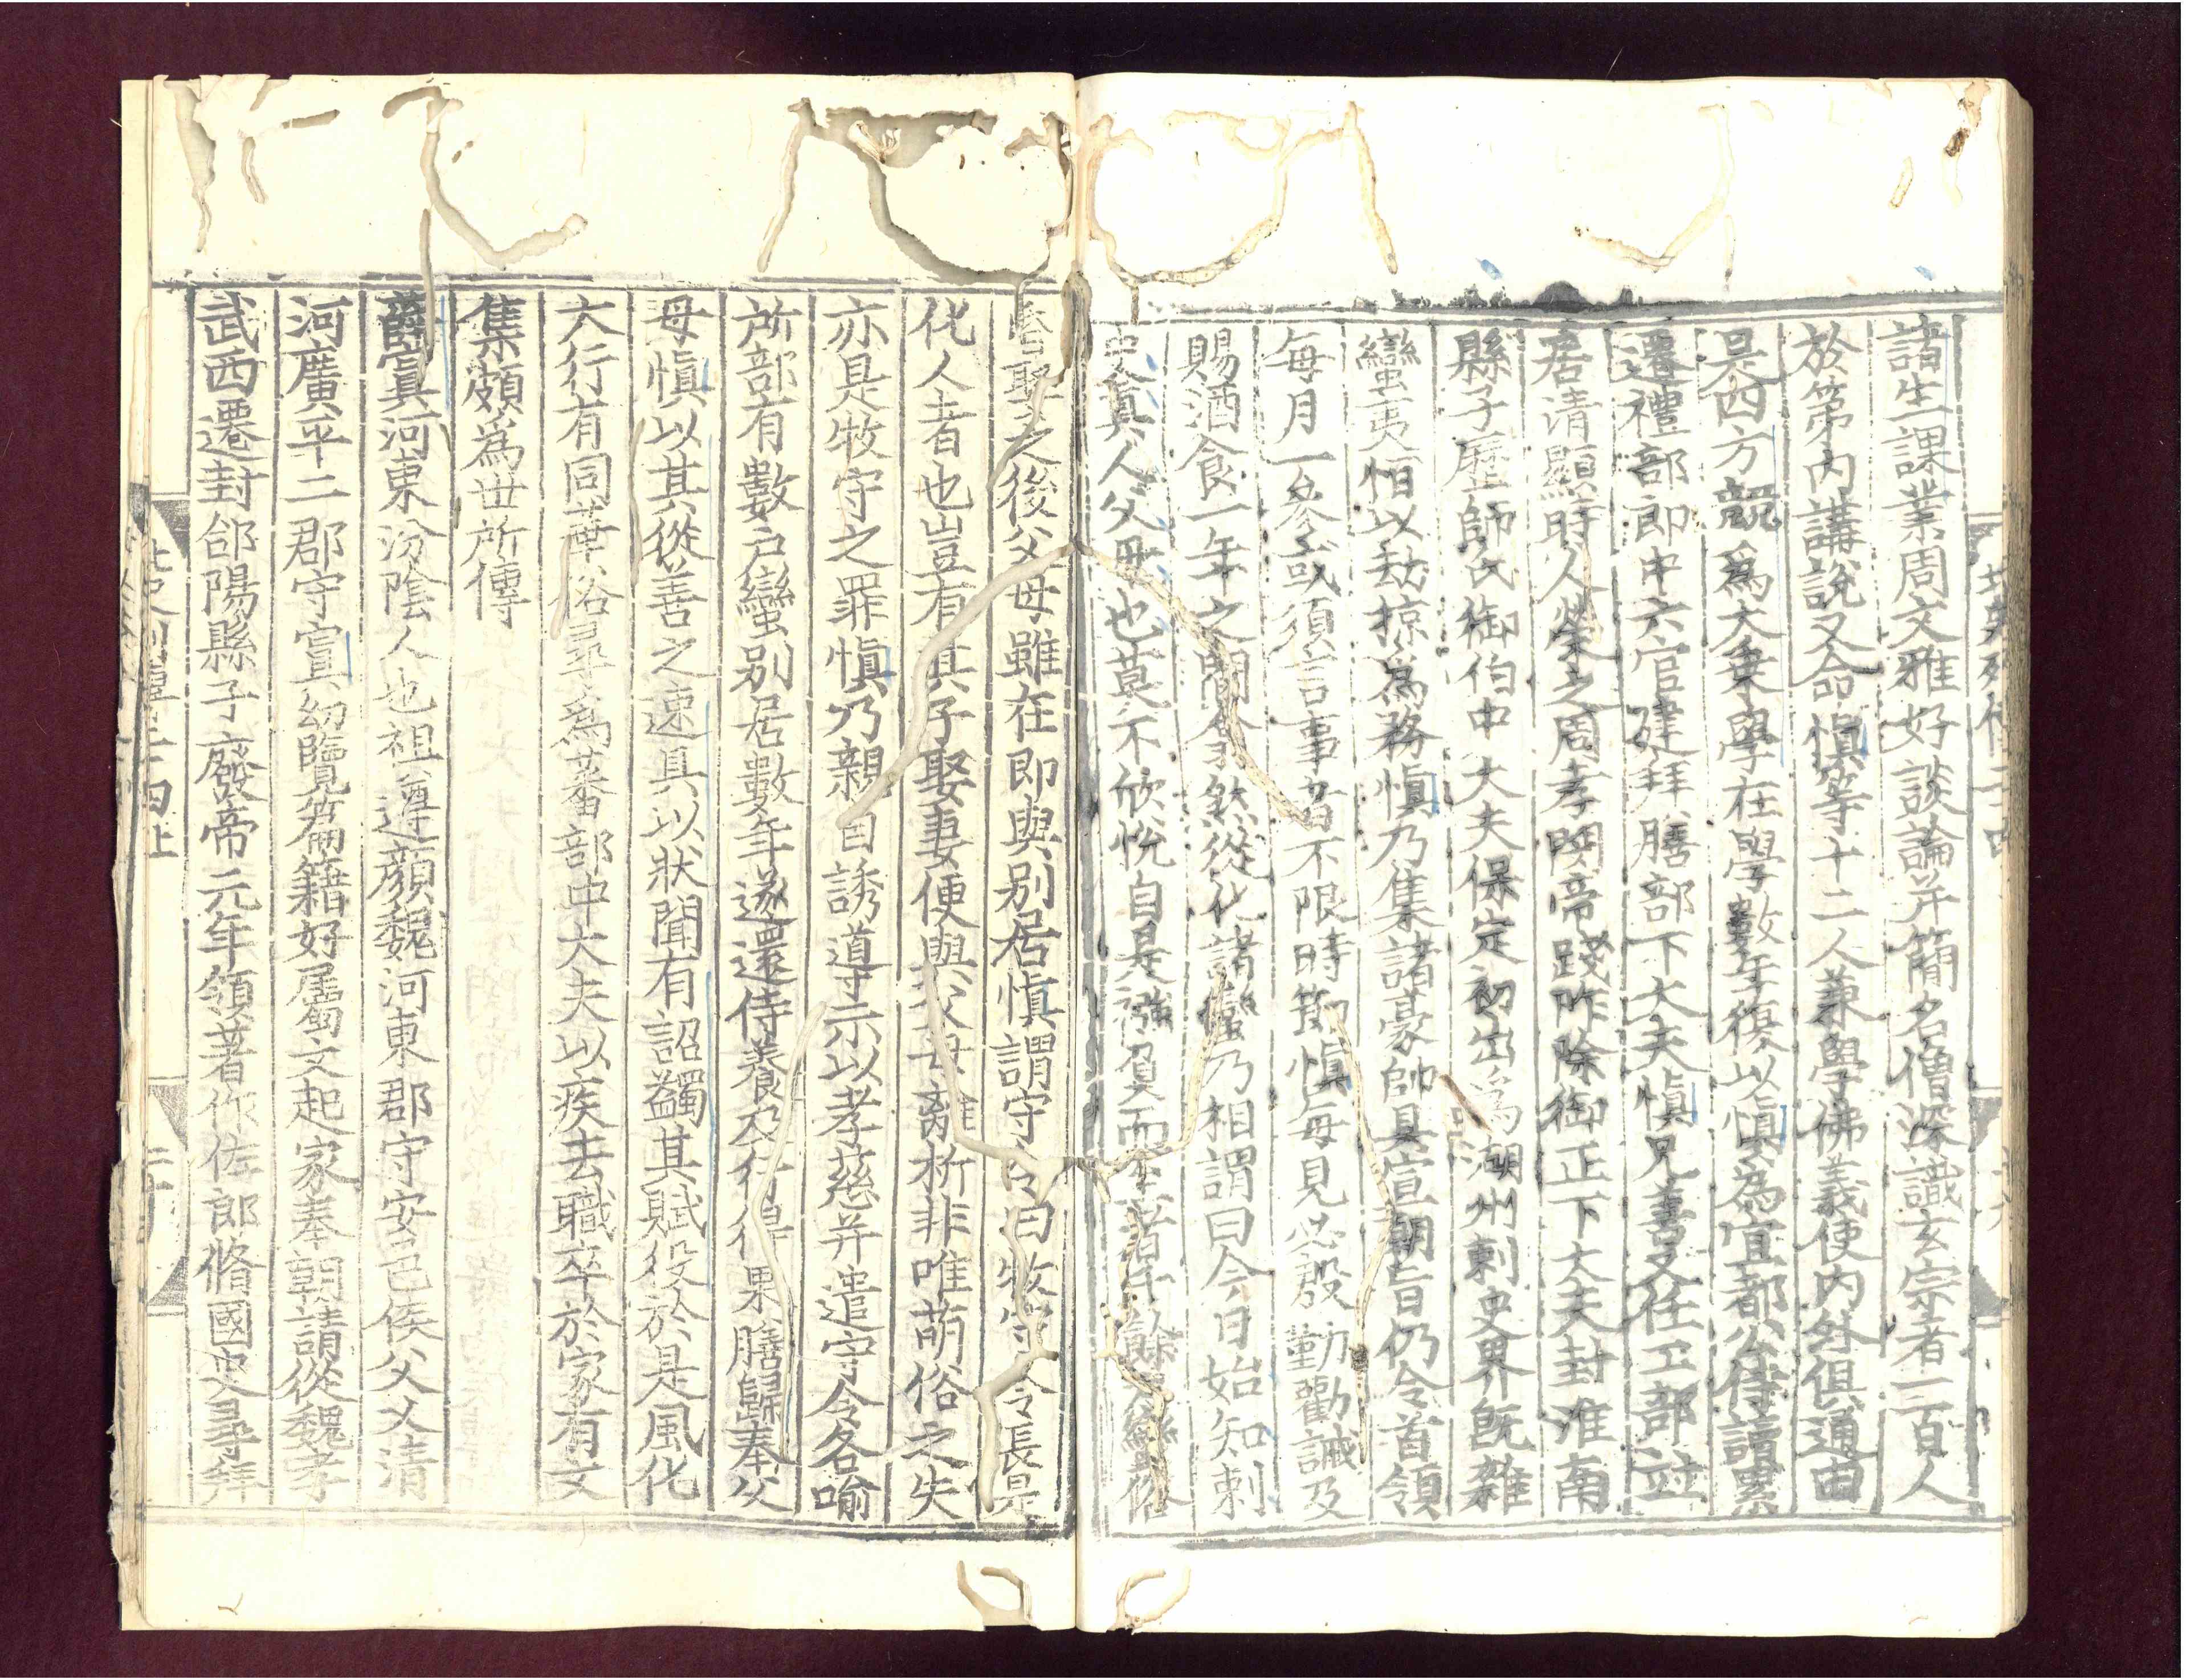 諸生課業周文雅好談論并簡名僧深識玄宗者一百人
於第內講說又命慎等十二人兼學佛義使內外俱通由
是四方競爲大乗學在學數年復以慎爲宜都公侍讀累
遷禮部郎中六官建拜膳部下大夫慎兄善又任工部並
居清顯時人榮之周孝閔帝踐阼除御正下大夫封淮南
縣子歷師氏御伯中大夫保定初出爲湖州刺史界旣雜
蠻夷恒以刼掠爲務慎乃集諸豪帥具宣朝旨仍令首領
每月一參或須言事者不限時節慎每見必殷勤勸誡及
賜酒食一年之間翕然從化諸蠻乃相謂曰今日始知刺
史眞人父母也莫不欣悅自是襁負而至者千餘戶蠻俗
昏娶之後父母雖在即與别居慎謂守令曰牧守令長是
化人者也豈有其子娶妻便與父母離析非唯萌俗之失
亦是牧守之罪慎乃親自誘導示以孝慈并遣守令各喻
所部有數戶蠻别居數年遂還侍養及行得果膳歸奉父
母慎以其從善之速具以狀聞有詔蠲其賦役於是風化
大行有同華俗尋爲蕃部中大夫以疾去職卒於家有文
集頗爲世所傳
薛寘河東汾陰人也祖遵顔魏河東郡守安邑侯父乂清
河廣平二郡守寘幼覽篇籍好屬文起家奉朝請從魏孝
武西遷封郃陽縣子廢帝元年領著作佐郎脩國史尋拜
北史列傳二十四上